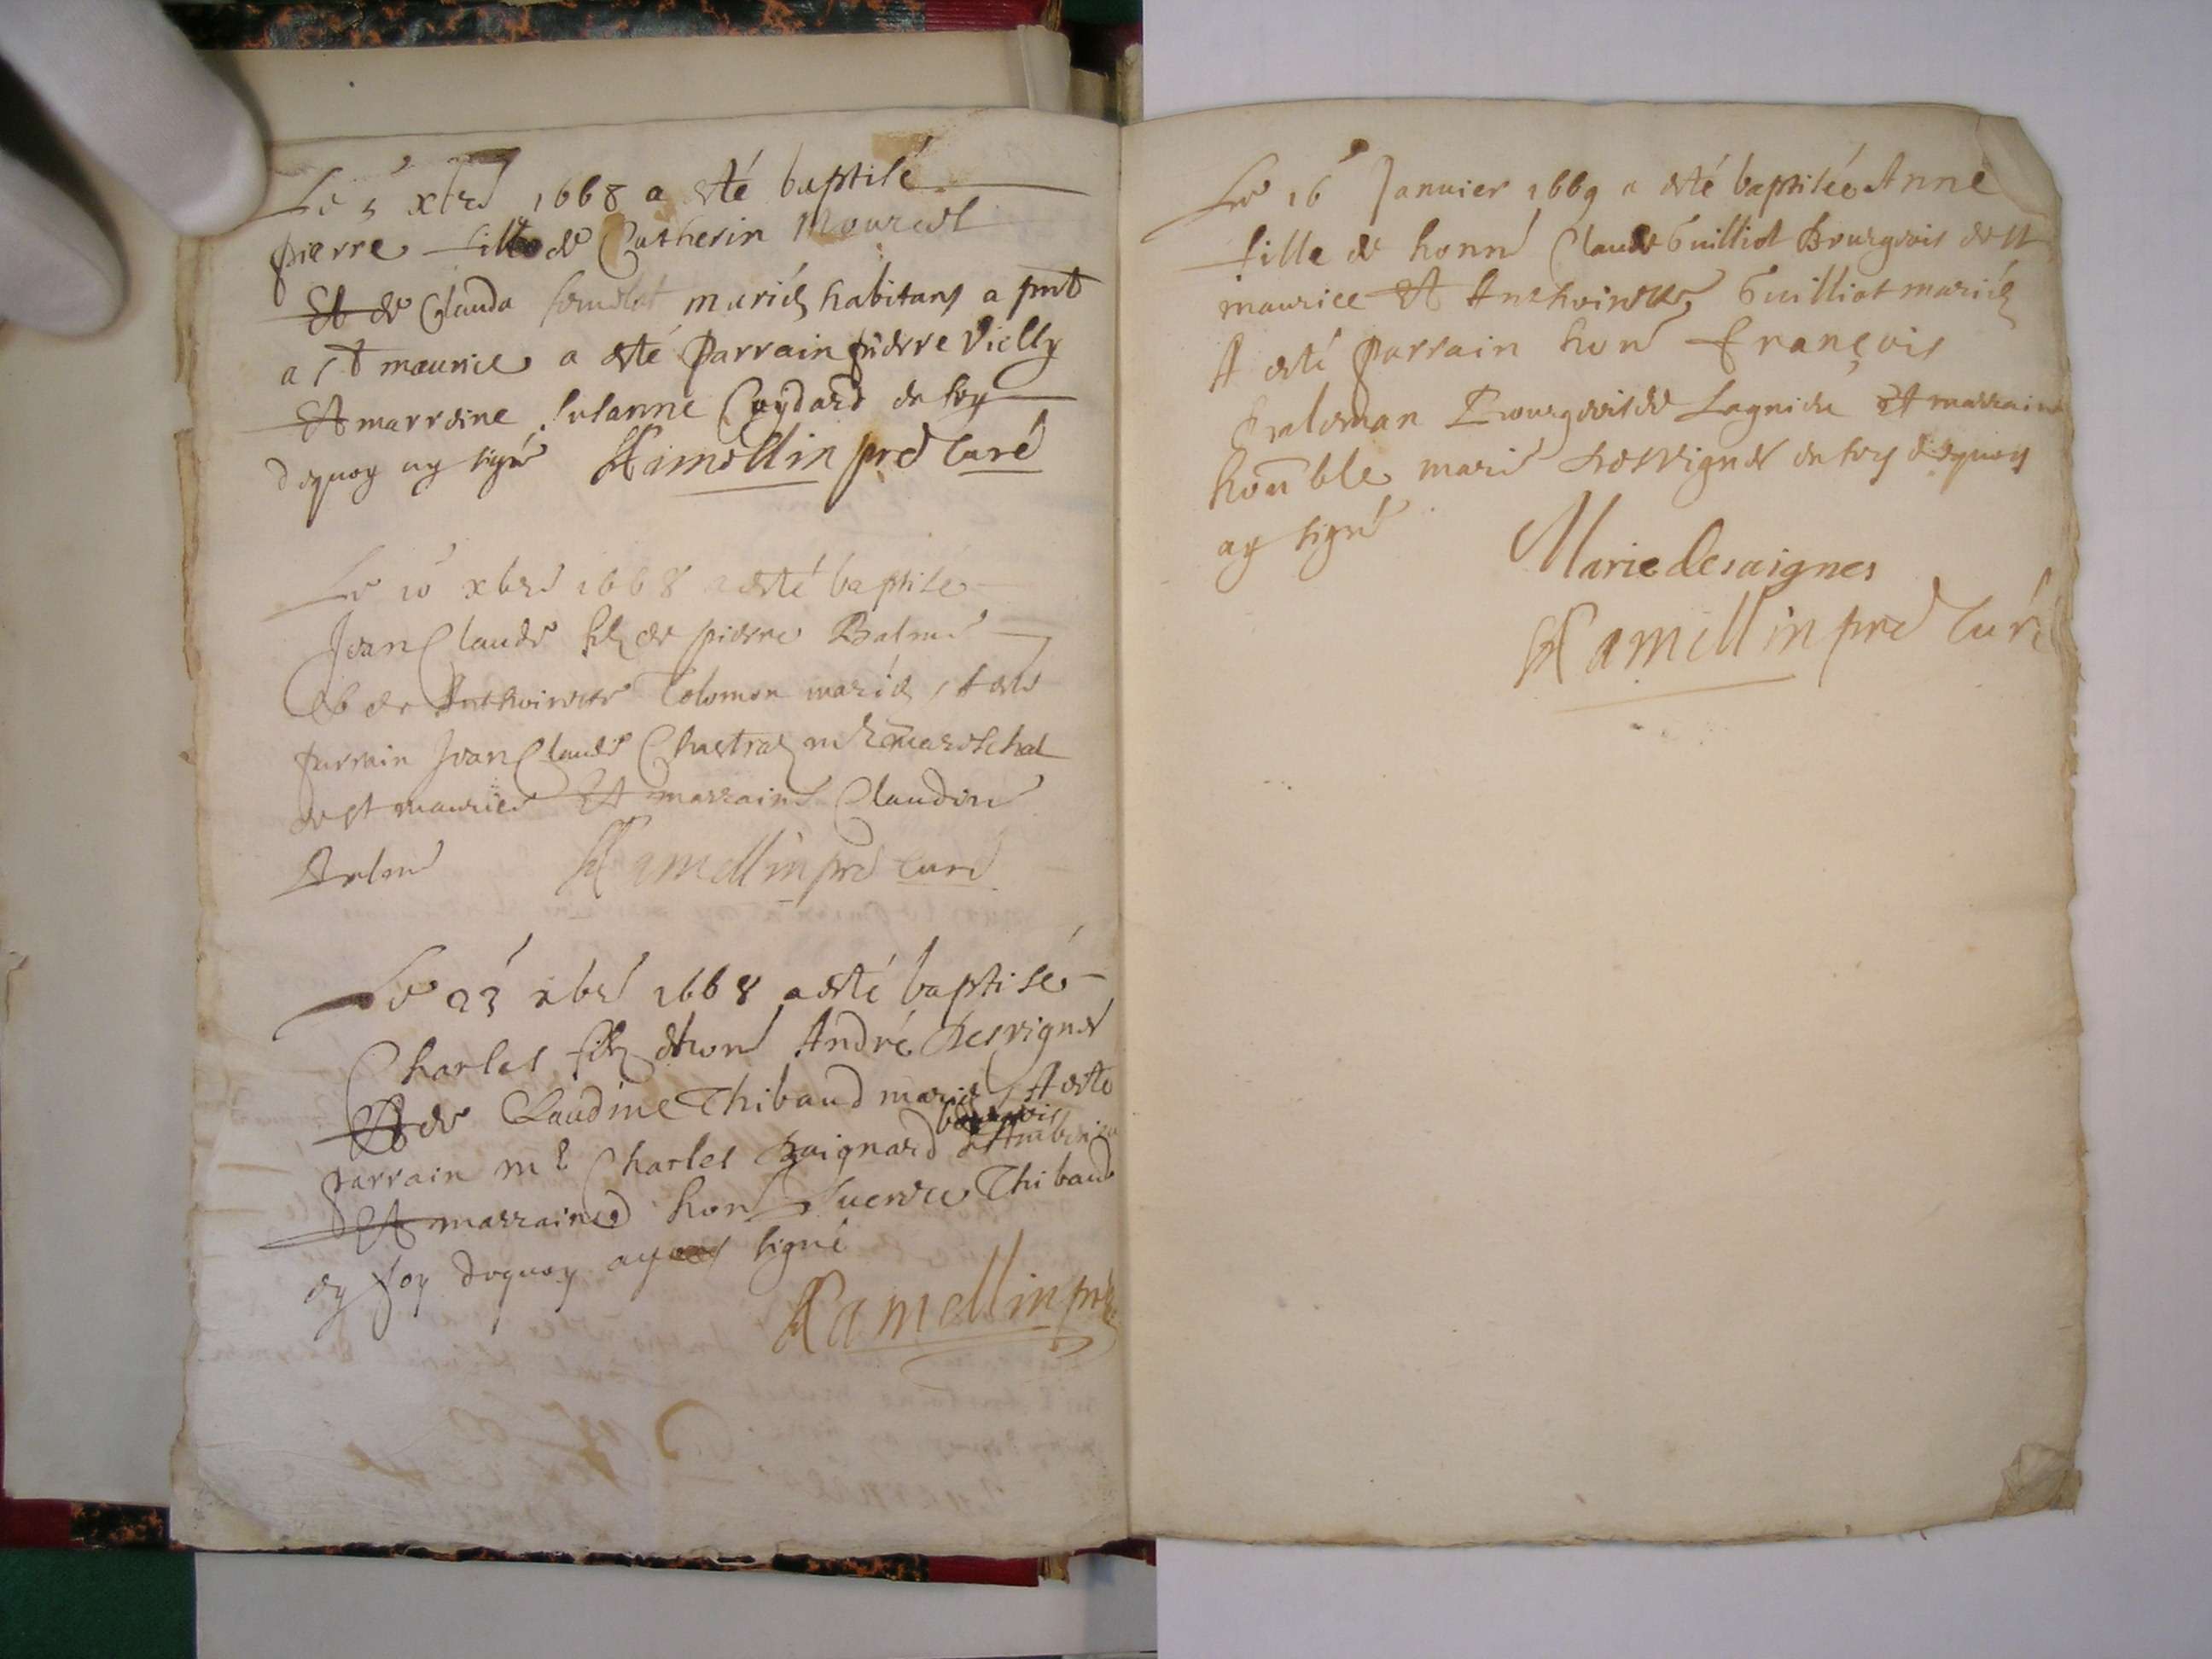 Le 5 xbre 1668 a esté baptisé
pierre fille de Catherin Mouret
Et de Clauda mariés habitans a pnt
a st maurice a esté Parrain pierre Vielly
Et marreine Susanne Coydard en foy
dequoy ay signé Hamellin pre Curé
Le 10 xbre 1668 a esté baptisé
Jean Claude filz de pierre Balme
Et de Anthoinette Colomon mariés, A esté
parrain Jean Claude Chastral me mareschal
de st maurice Et marraine Claudine
Hamellin pre Curé
Le 23 xbre 1668 a esté baptisé
Charles filz dhon André Desvignes
Et de Claudine Thibaud mariés, A esté
bourgois
parrain me Charles Baignard dAmbérieu
Et marraine hon Lucrece Thibaud
en foy dequoy ay signé
Hamellin pre
Le 16 Janvier 1669 a esté baptisée Anne
fille de honn Claude Guilliot Bourgois de st
maurice Et Anthoinette Guilliot mariés
A esté Parrain hon François
Bourgois de Lagnieu Et marraine
honble marie Desvignes en foy dequoy
ay signé
Marie desaignes
Hamellin pre Curé